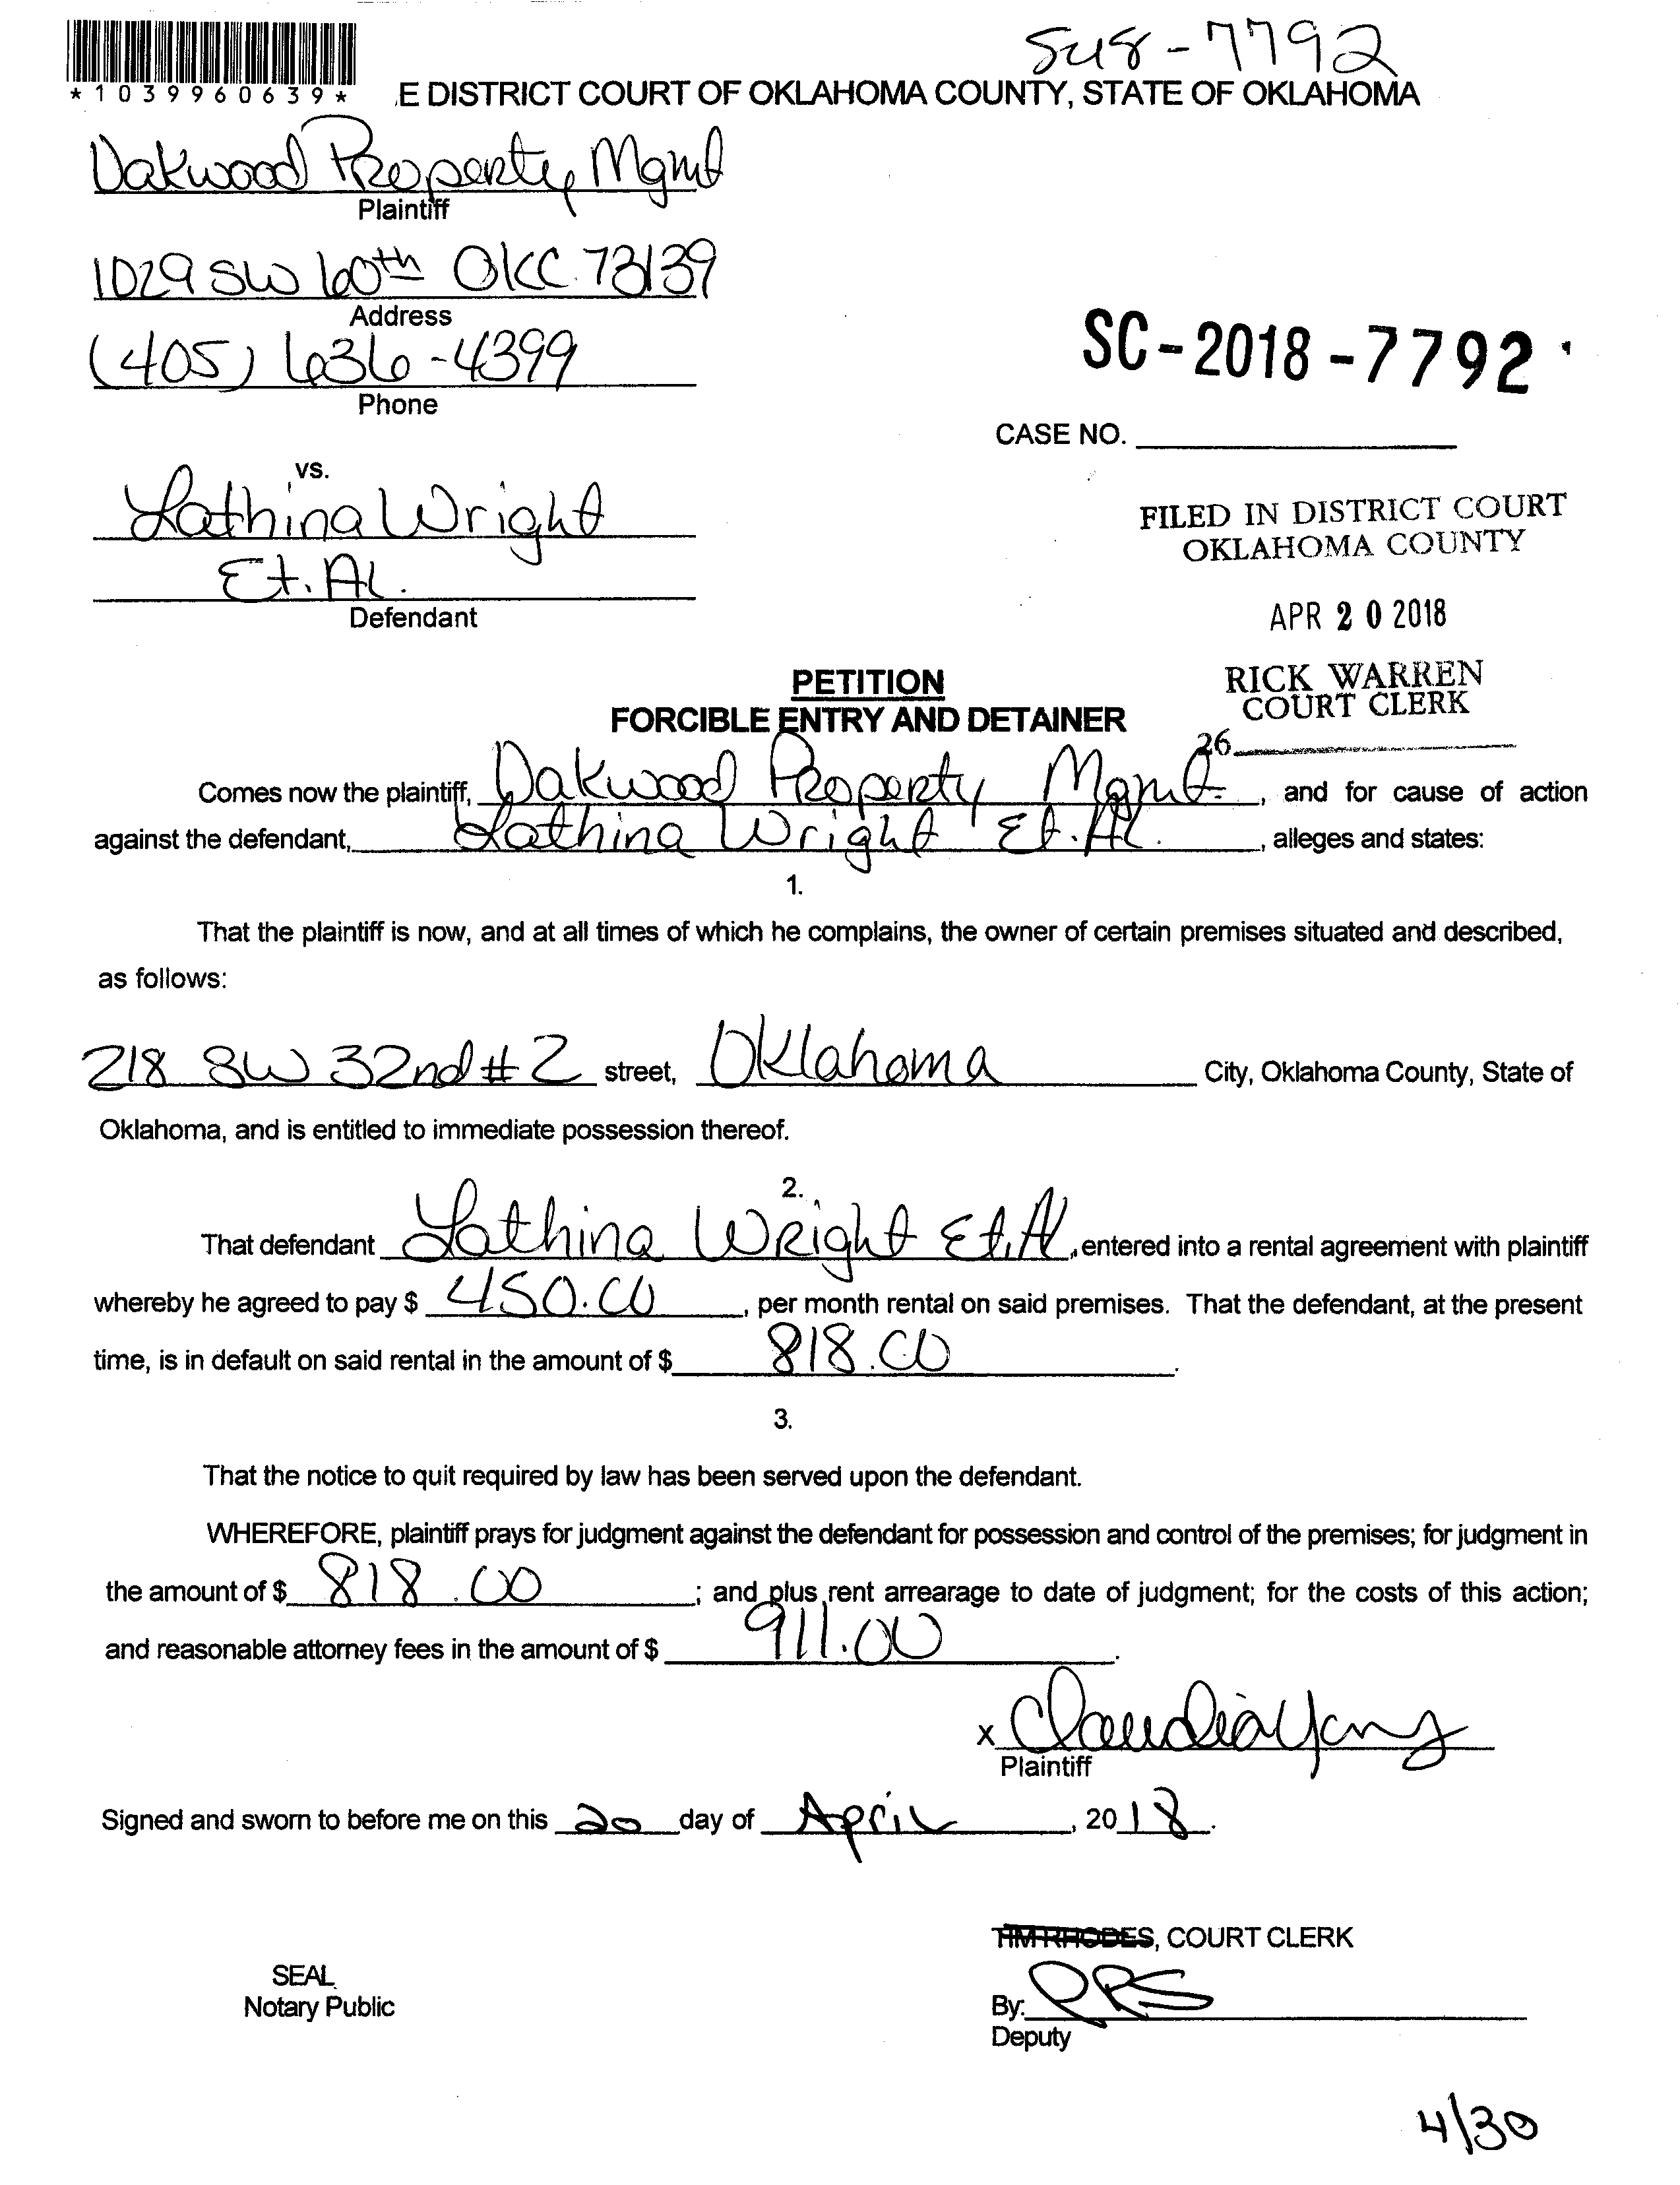 SC18-7792
*1039960639*
E DISTRICT COURT OF OKLAHOMA COUNTY, STATE OF OKLAHOMA
Oakwood Property Mgmt
Plaintiff
1029 SW 60th OKC. 73139
Address
(405) 636-4399
Phone
SC-2018-7792
CASE NO.
vs.
Lathina Wright
Et. Al.
Defendant
FILED IN DISTRICT COURT
OKLAHOMA COUNTY
APR 20 2018
RICK WARREN
COURT CLERK
26
PETITION
FORCIBLE ENTRY AND DETAINER
Comes now the plaintiff, Oakwood Property Mgmt., and for cause of action
against the defendant, Lathina Wright Et. Al., alleges and states:
1.
That the plaintiff is now, and at all times of which he complains, the owner of certain premises situated and described,
as follows:
218 SW 32nd #2 street, Oklahoma City, Oklahoma County, State of
Oklahoma, and is entitled to immediate possession thereof.
2.
That defendant Lathina Wright Et. Al, entered into a rental agreement with plaintiff
whereby he agreed to pay $ 450.00, per month rental on said premises. That the defendant, at the present
time, is in default on said rental in the amount of $ 818.00.
3.
That the notice to quit required by law has been served upon the defendant.
WHEREFORE, plaintiff prays for judgment against the defendant for possession and control of the premises; for judgment in
the amount of $ 818.00; and plus rent arrearage to date of judgment; for the costs of this action;
and reasonable attorney fees in the amount of $ 911.00.
x Claudia
Plaintiff
Signed and sworn to before me on this 20 day of April, 2018.
TIM RHODES, COURT CLERK
SEAL
Notary Public
By:
Deputy
4/30